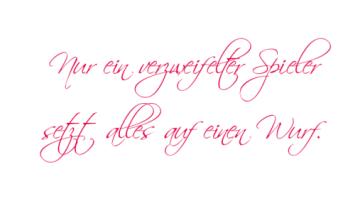 Nur ein verzweifelter Spieler
setzt alles auf einen Wurf.